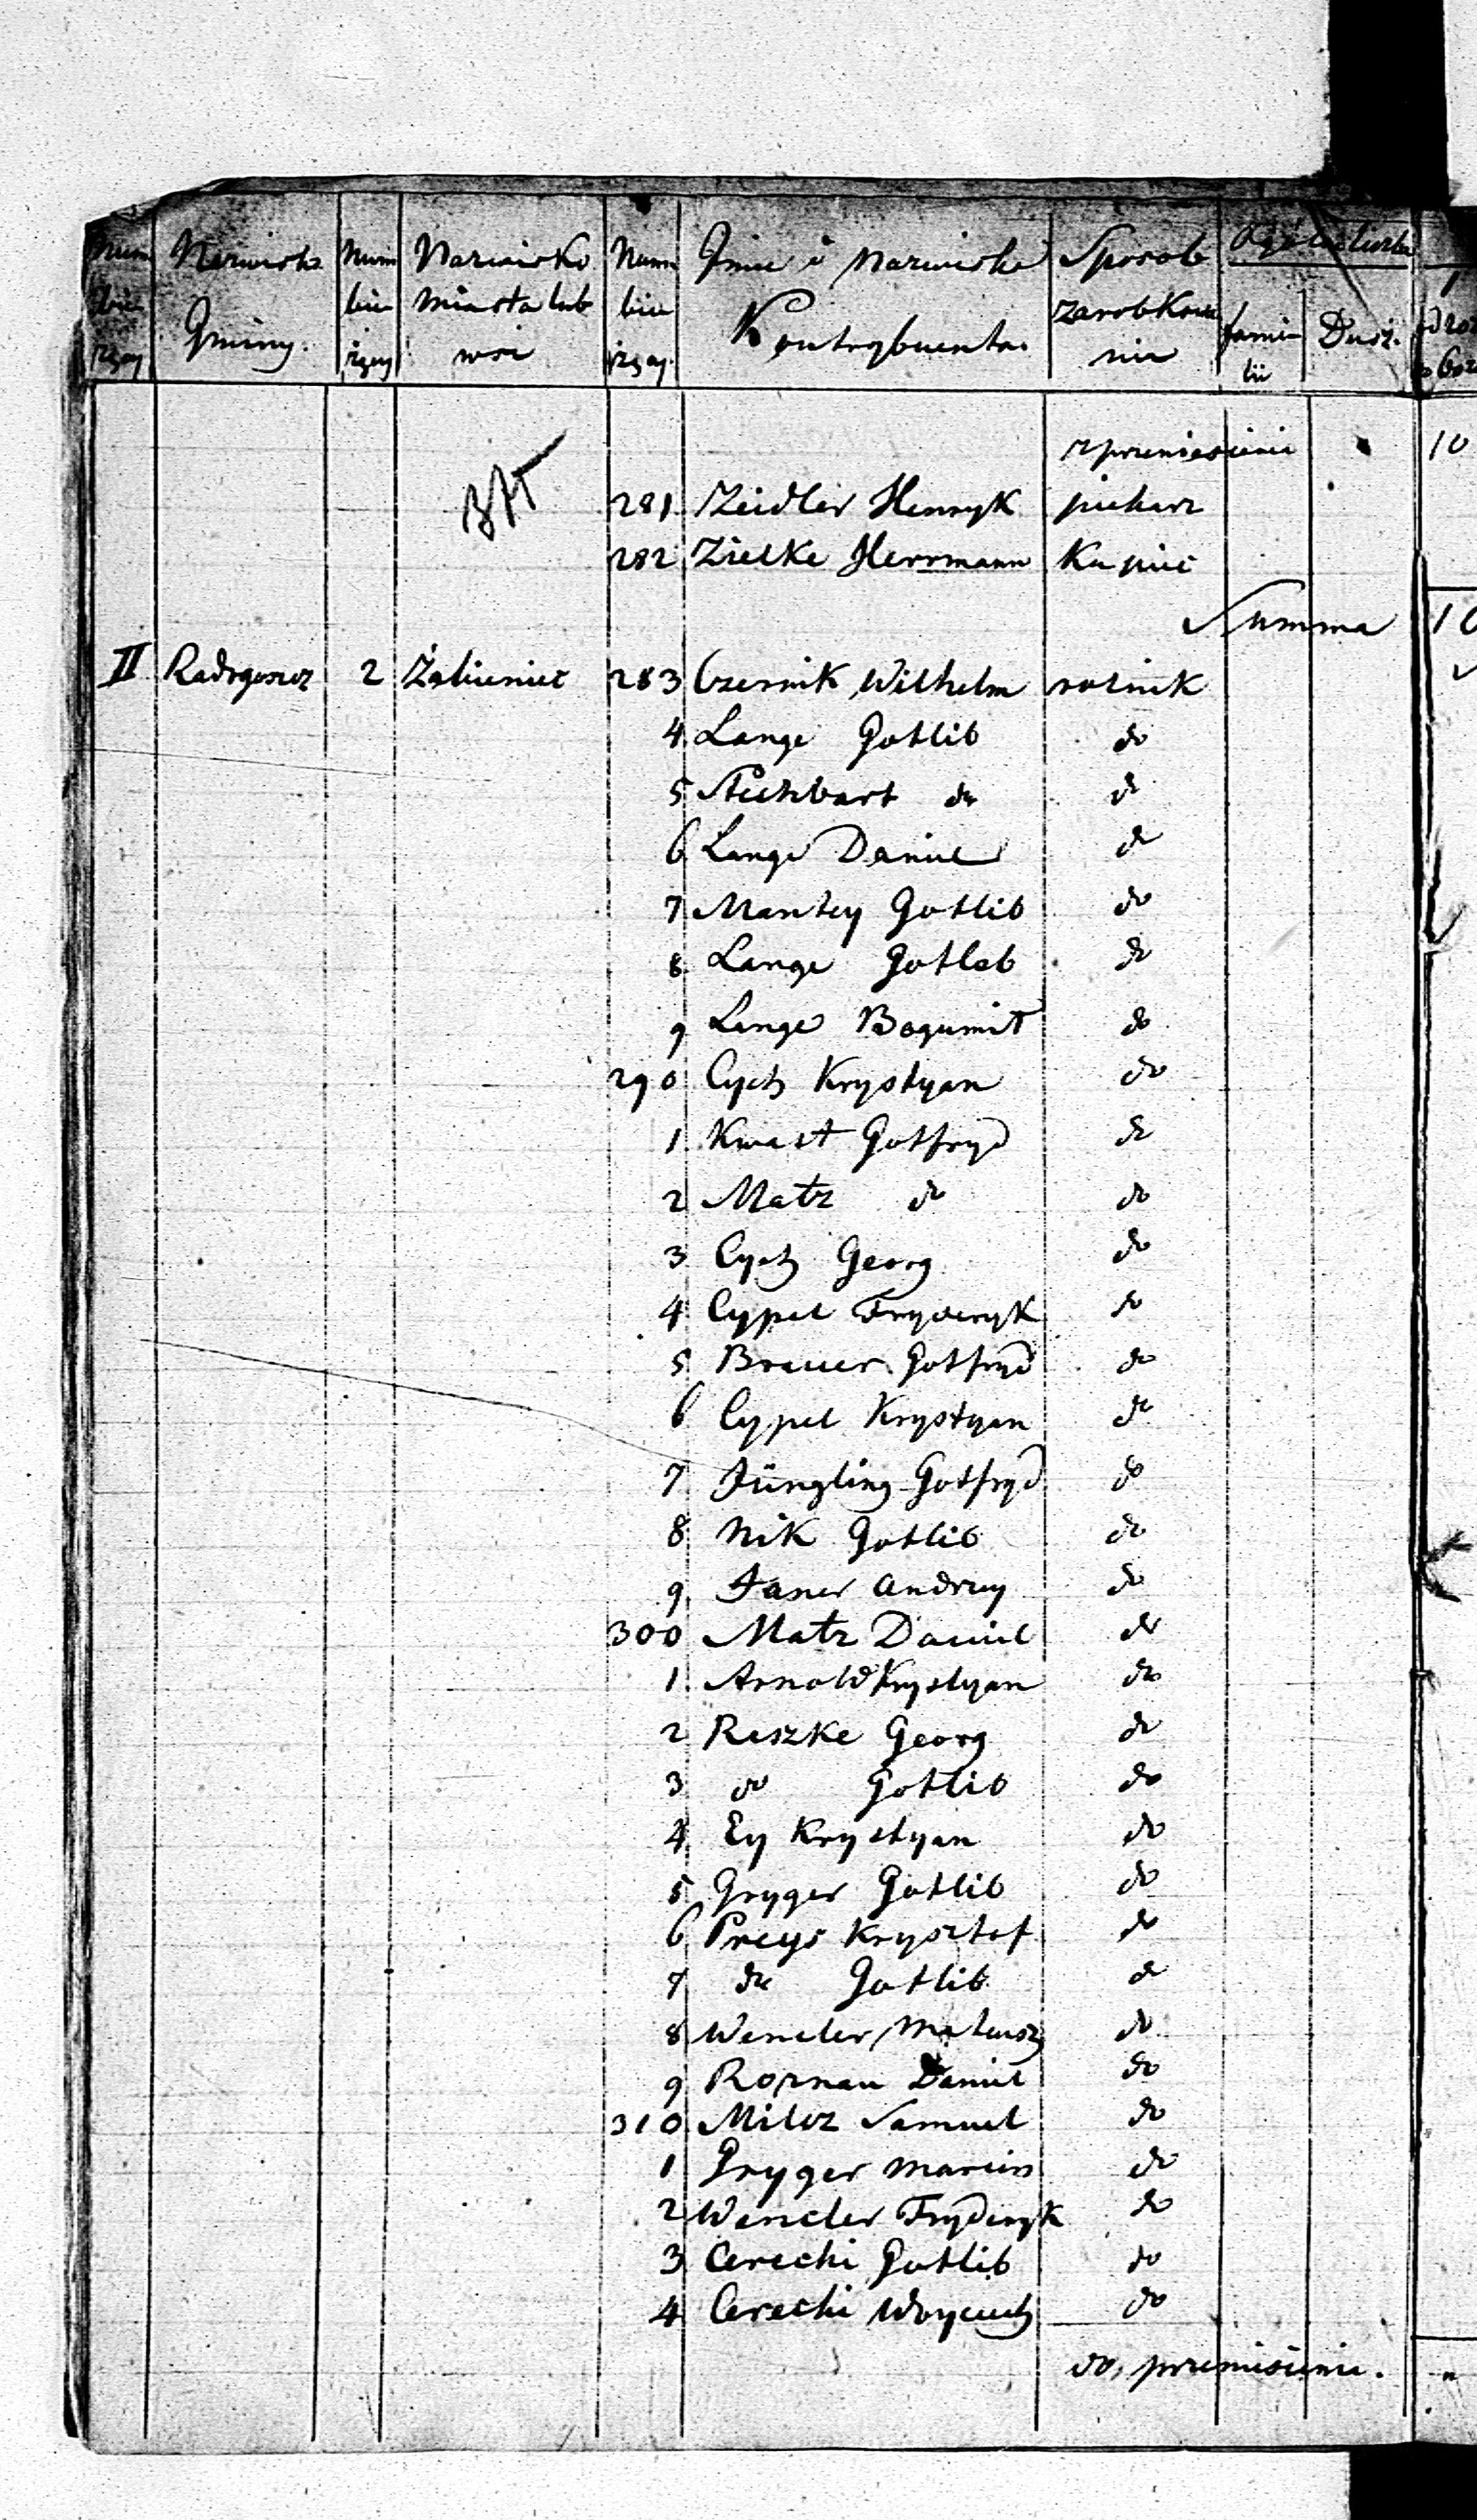 Num Nazwisko Num Nazwisko Num Imie i Nazwisko Sposob Ogół liczba
bie Gminy. bie miasta lub bie Kontrybuenta. zarobkowa famie Dusz.
żący żący wsi żący. nia lii
z przeniesienia 10
281 Zeidler Henryk piekarz
282 Zielke Herrmann Kupiec
Summa 10
II Radogoszcz 2 Żabieniec 283 Czernik Wilhelm rolnik
4 Lange Gotlib do
5 do do
6 Lange Daniel do
7 Mantey Gotlib do
8 Lange Gotlob do
9 Lange Bogumił do
290 Cych Krystyan do
1 Kwast Gotfryd do
2 Matz do do
3 Cych Georg do
4 Cypel Fryderyk do
5 Brauer Gotfryd do
6 Cypel Krystyan do
7 Jüngling Gotfryd do
8 Nik Gotlib do
9 Janer Andrzej do
300 Matz Daniel do
1 Arnold Krystyan do
2 Reszke Georg do
3 do Gotlib do
4 Ey Krystyan do
5 Gryger Gotlib do
6 Preys Krysztof do
7 do Gotlib do
8 Wencler Mateusz do
9 Roznau Daniel do
310 Milcz Samuel do
1 Gryger Marcin do
2 Wencler Fryderyk do
3 Cerecki Gotlib do
4 Cerecki Woyciech do
do przeniesienia. "